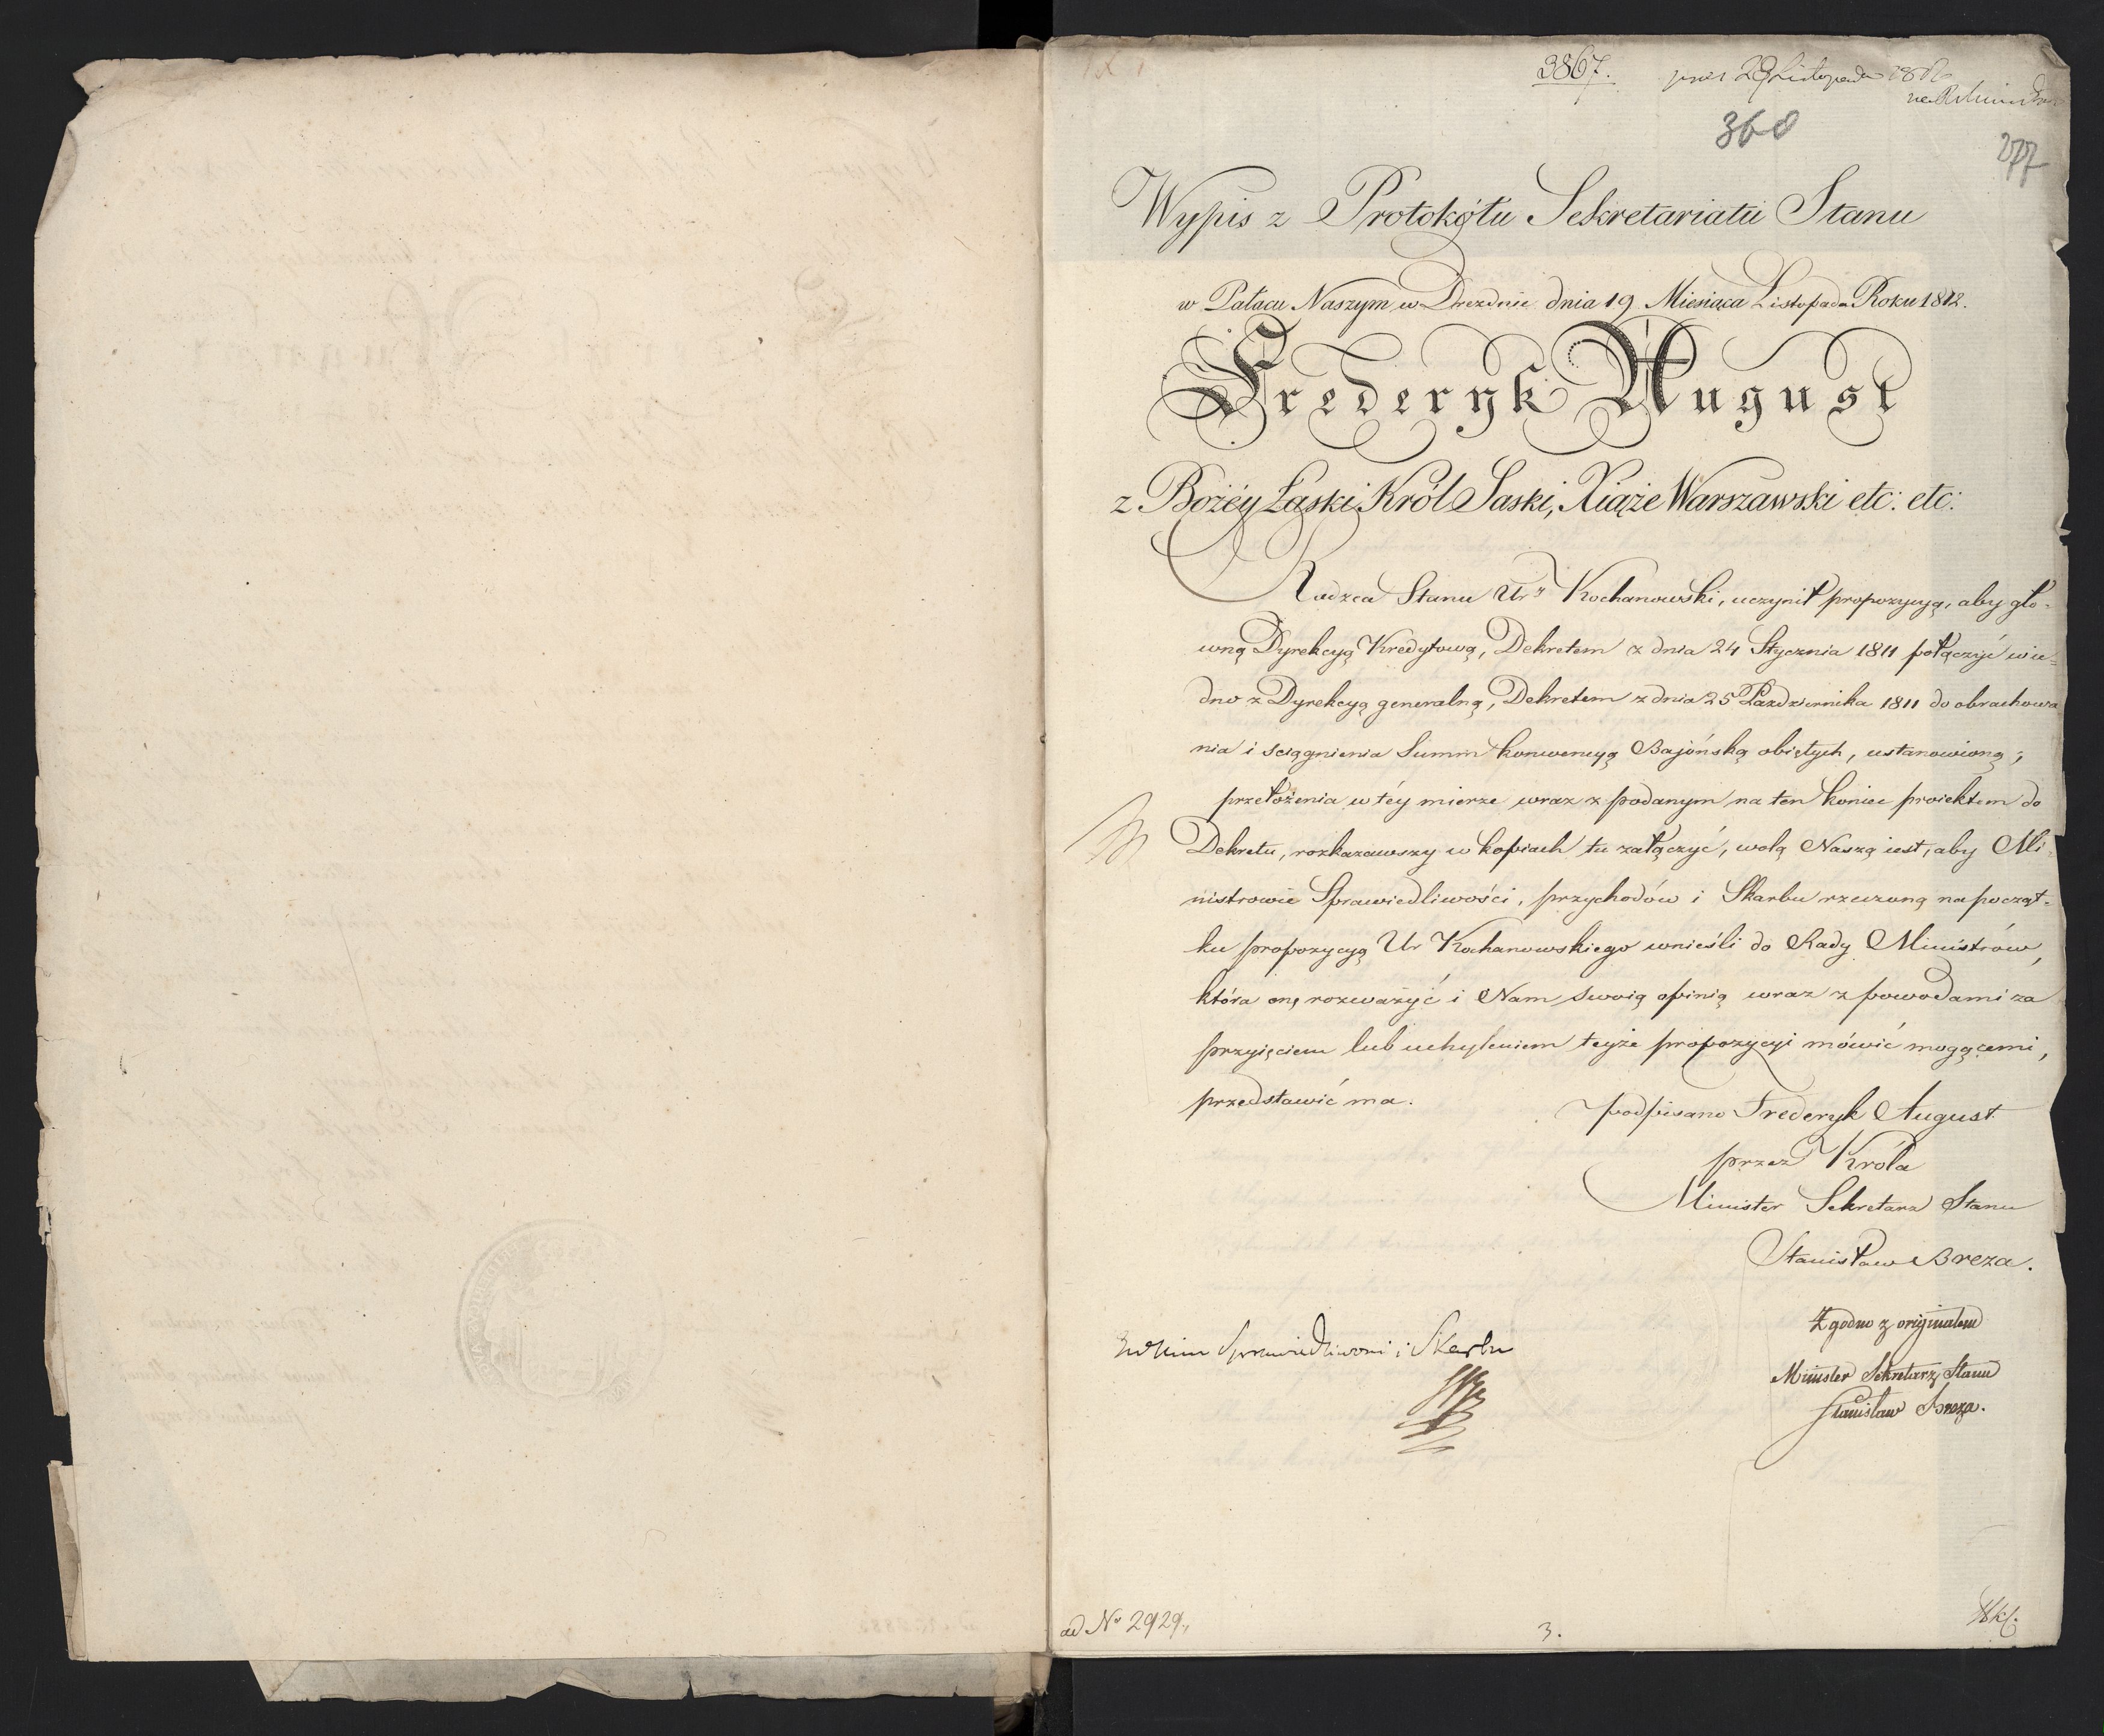 3867.
prez 29 Listopada 1812
360
277
Wypis z Protokółu Sekretariatu Stanu
w Pałacu Naszym w Dreznie dnia 19 Miesiąca Listopada Roku 1812.
Frederyk August
z Bożey Łaski Król Saski, Xiąże Warszawski etc: etc:
Radzca Stanu Ur. Kochanowski, uczynił propozycyą, aby gło-
wną Dyrekcyą Kredytową, Dekretem z dnia 24 Stycznia 1811 połączyć wie-
dno z Dyrekcyą generalną, Dekretem z dnia 25 Pazdziernika 1811 do obrachowa
nia i sciągnienia Summ konwencyą Bajońską obiętych, ustanowioną;
przełożenia w téy mierze wraz z podanym na ten koniec proiektem do
Dekretu, rozkazawszy w kopiach tu załączyć, wolą Naszą iest, aby Mi-
nistrowie Sprawiedliwości, przychodów i Skarbu rzeczoną na począt-
ku propozycyą Ur Kochanowskiego wnieśli do Rady Ministrów,
która onę rozważyć i Nam swoią opinią wraz z powodami za
przyięciem lub uchyleniem teyże propozycyi mówić mogącemi,
przedstawić ma.
podpisano Frederyk August
przez Króla
Minister Sekretarz Stanu
Stanisław Breza.
Zgodno z originałem
Minister Sekretarz Stanu
Stanisław Breza.
Sprawiedliwości i Skarbu
ad No 2929.
3.